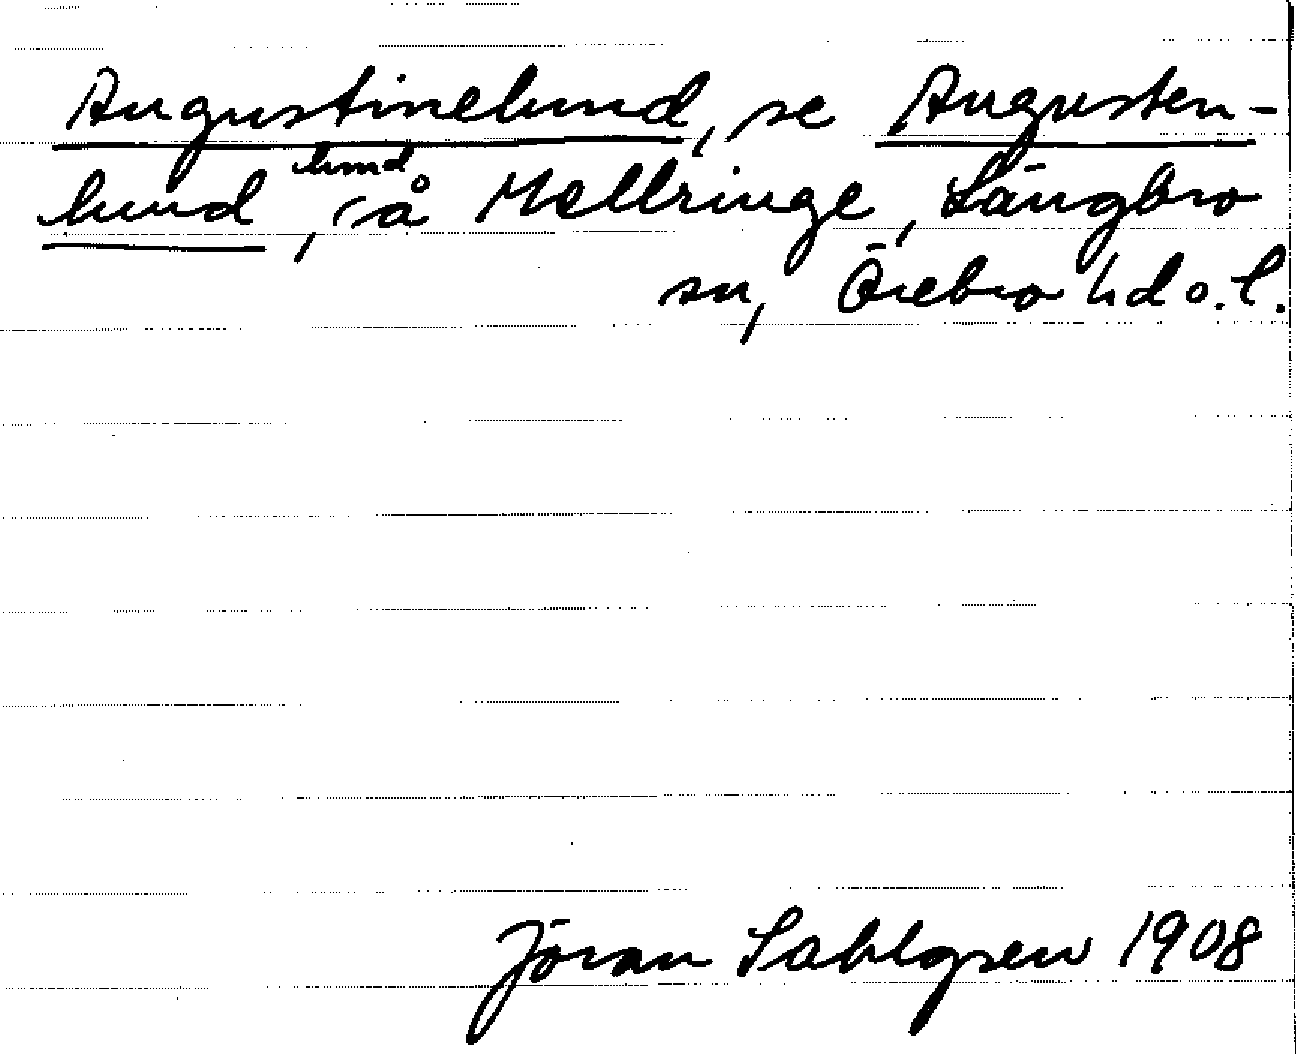 Augustinelund, se Augusten-
lund, lund å Mellringe, Längbro
sn, Örebro hd o. l.
Jöran Sahlgren 1908